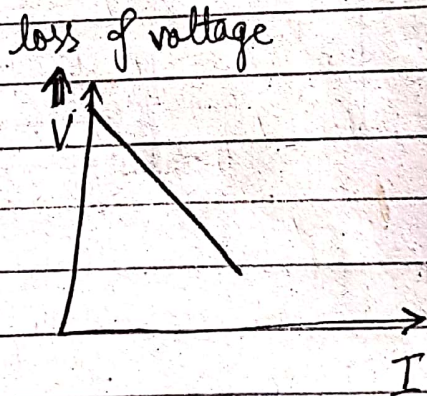 loss of voltage
V
I